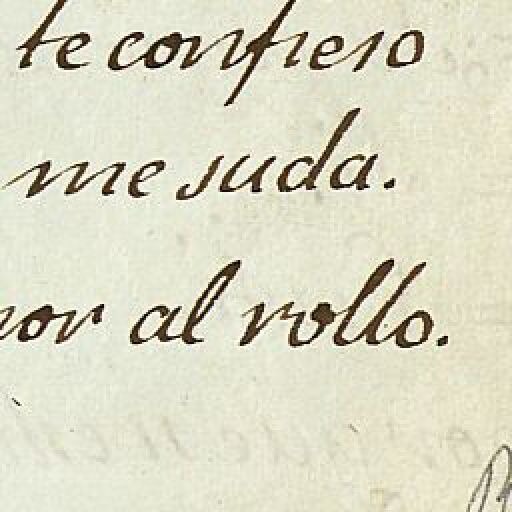 te confieso
me suda.
nor al rollo.